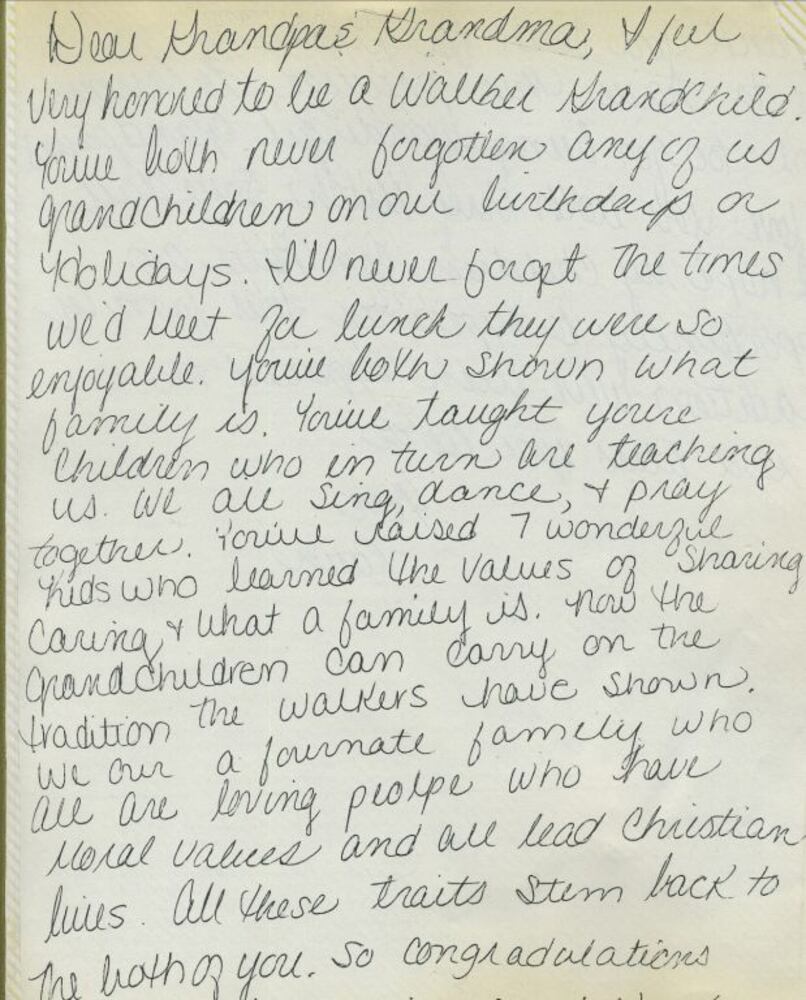 Dear Grandpa & Grandma, I feel
very honored to be a Walker Grandchild.
You've both never forgotten any of us
grandchildren on our birthdays or
Holidays. I'll never forget the times
we'd meet for lunch they were so
enjoyable. You've both shown what
family is. You've taught youre
children who in turn are teaching
us. We all sing, dance, & pray
together. You've raised 7 wonderful
kids who learned the values of sharing
caring & what a family is. Now the
grandchildren can carry on the
tradition the Walkers have shown.
We our a fournate family who
all are loving peolpe who have
moral values and all lead Christian
lives. All these traits stem back to
the both of you. So congradulations